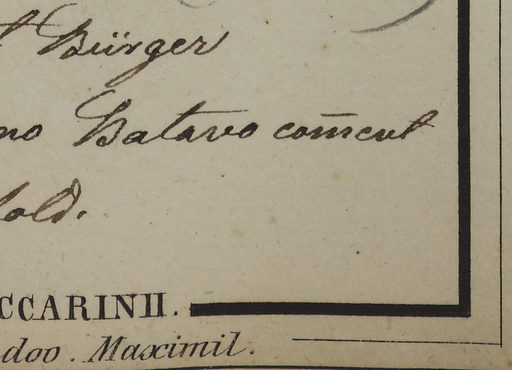 t Bürger
no Batavo com̄cut
old.
CCARINII.
doo. Maximil.